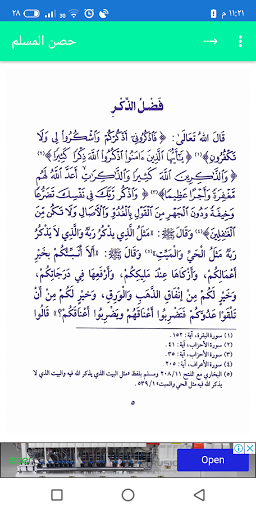 ٢٨ 3G ١١:٢١ م
حصن المسلم
فَضْلُ الذِّكْرِ
قَالَ اللهُ تَعَالَى: ﴿فَاذْكُرُونِي أَذْكُرْكُمْ وَاشْكُرُوا لِي وَلَا
تَكْفُرُونِ﴾(١) ﴿يَا أَيُّهَا الَّذِينَ ءَامَنُوا اذْكُرُوا اللهَ ذِكْرًا كَثِيرًا﴾(٢)
﴿وَالذَّاكِرِينَ اللهَ كَثِيرًا وَالذَّاكِرَاتِ أَعَدَّ اللهُ لَهُم
مَّغْفِرَةً وَأَجْرًا عَظِيمًا﴾(٣) ﴿وَاذْكُر رَّبَّكَ فِي نَفْسِكَ تَضَرُّعًا
وَخِيفَةً وَدُونَ الْجَهْرِ مِنَ الْقَوْلِ بِالْغُدُوِّ وَالْآصَالِ وَلَا تَكُن مِّنَ
الْغَافِلِينَ﴾(٤) وَقَالَ ﷺ: «مَثَلُ الَّذِي يَذْكُرُ رَبَّهُ وَالَّذِي لَا يَذْكُرُ
رَبَّهُ مَثَلُ الْحَيِّ وَالْمَيِّتِ»(٥) وَقَالَ ﷺ: «أَلَا أُنَبِّئُكُمْ بِخَيْرِ
أَعْمَالِكُمْ، وَأَزْكَاهَا عِنْدَ مَلِيكِكُمْ، وَأَرْفَعِهَا فِي دَرَجَاتِكُمْ،
وَخَيْرٍ لَكُمْ مِنْ إِنْفَاقِ الذَّهَبِ وَالْوَرِقِ، وَخَيْرٍ لَكُمْ مِنْ أَنْ
تَلْقَوْا عَدُوَّكُمْ فَتَضْرِبُوا أَعْنَاقَهُمْ وَيَضْرِبُوا أَعْنَاقَكُمْ؟» قَالُوا
(١) سورة البقرة، آية: ١٥٢.
(٢) سورة الأحزاب، آية: ٤١.
(٣) سورة الأحزاب، آية: ٣٥.
(٤) سورة الأعراف، آية: ٢٠٥.
(٥) البخاري مع الفتح ٢٠٨/١١ ومسلم بلفظ «مثل البيت الذي يذكر الله فيه والبيت الذي لا
يذكر الله فيه مثل الحي والميت» ٥٣٩/١.
٥
Open